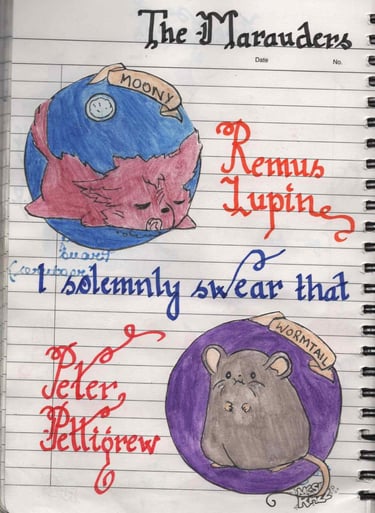 The Marauders
Date No.
MOONY
Remus
Lupin
I solemnly swear that
WORMTAIL
Peter
Pettigrew